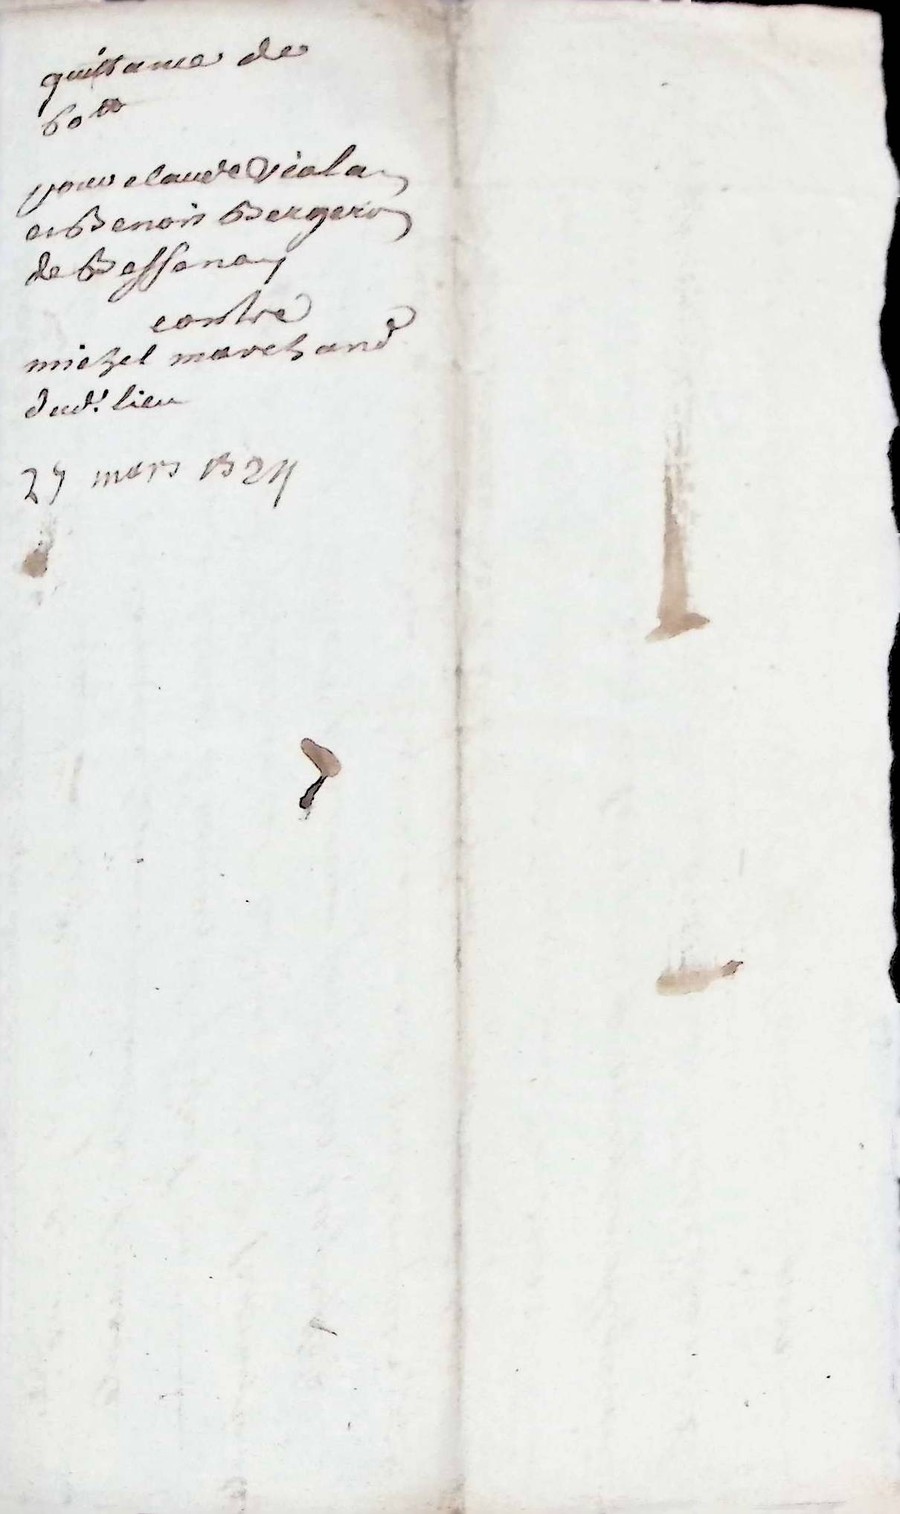 quittance de
60 tt
pour claude Viala
et Benois Bergeron
de Bessenay
contre
michel marchand
dud.t lieu
27 mars